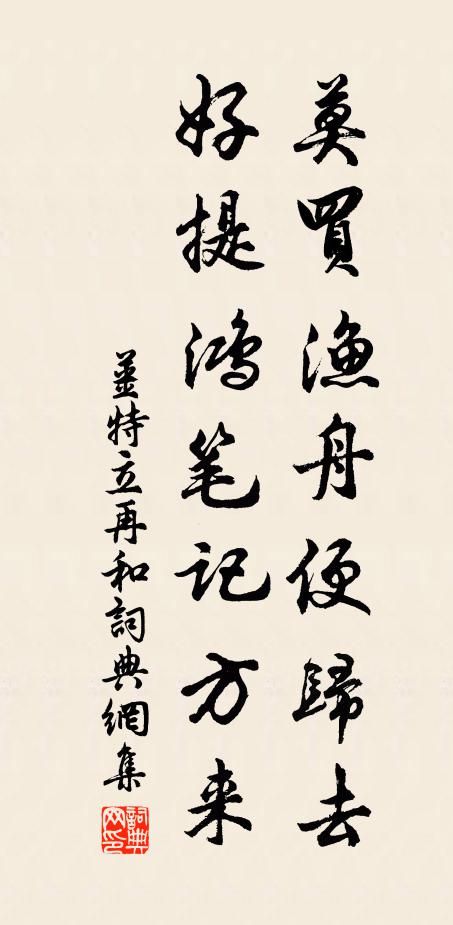 莫買漁舟便歸去
好提鴻笔記方来
薑特立再和詞典網集
詞典网印